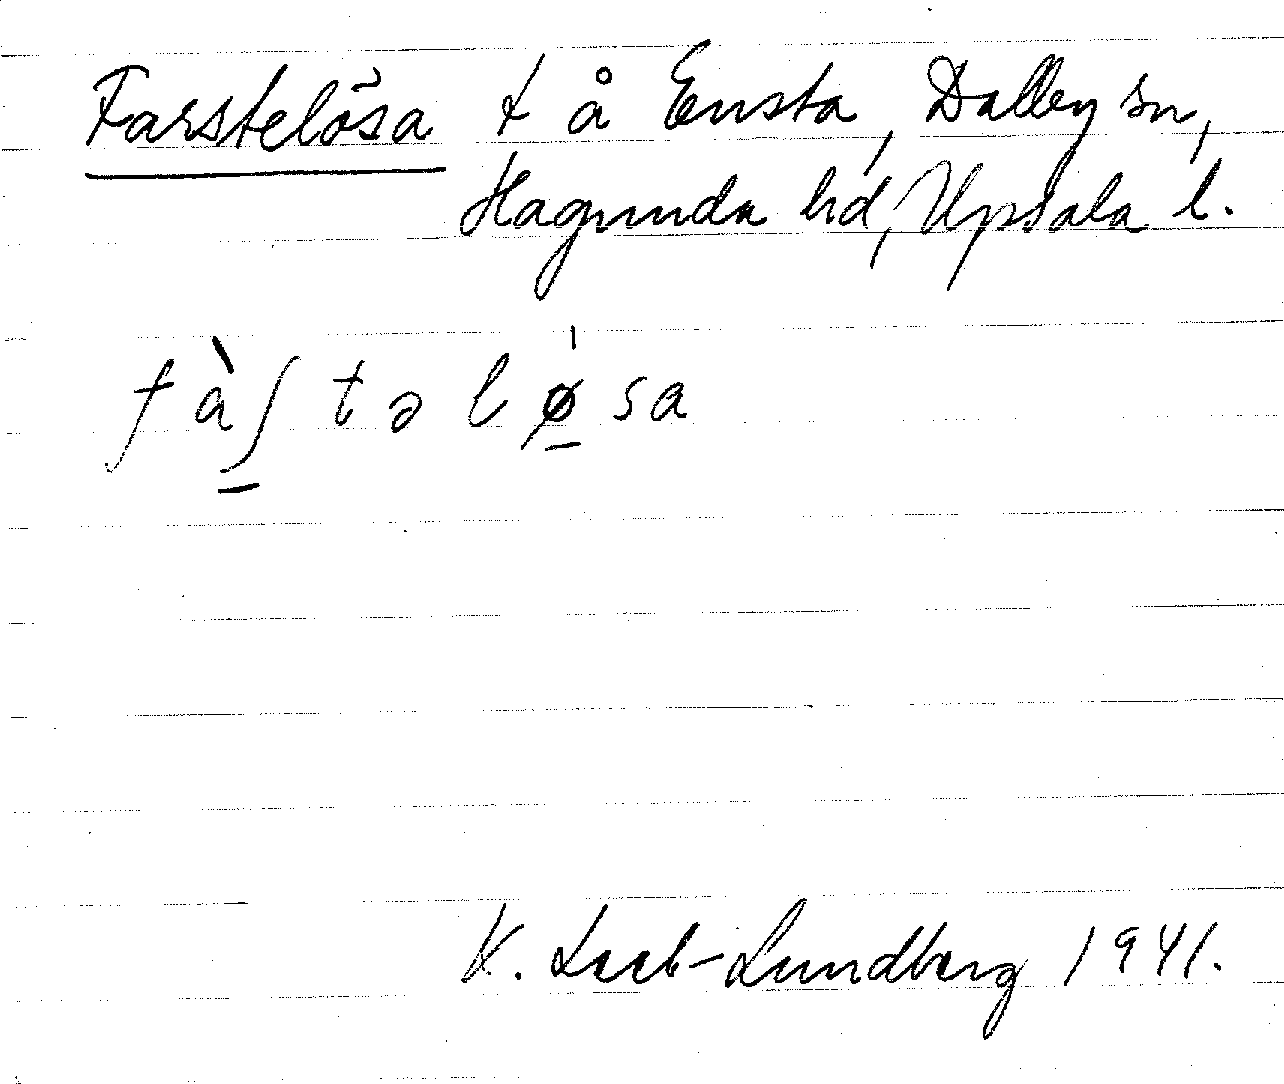 Farstelösa t å Ensta, Dalby sn,
Hagunda hd, Upsala l.
fàʃtəlø̱sa
V. Loeb-Lundberg 1941.